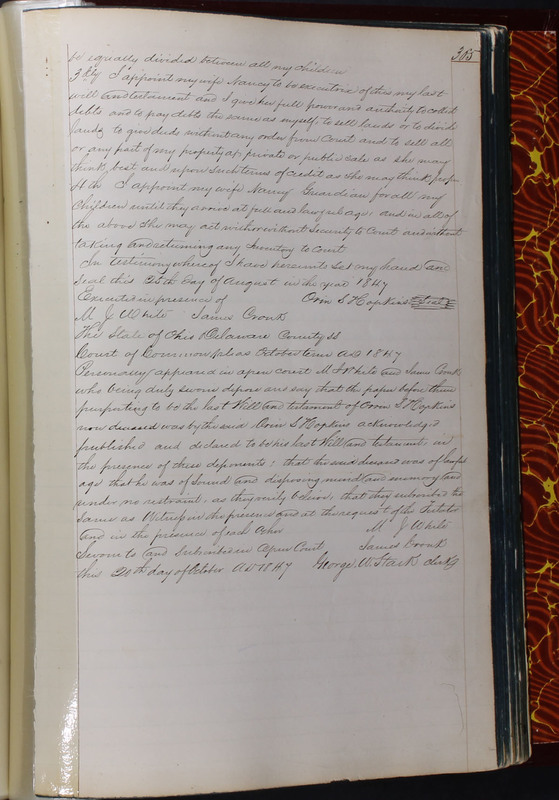 305
be equally divided between all my children
3dly I appoint my wife Nancy to be executrix of this my last
will and testament and I give her full power and authority to collect
debts and to pay debts the same as myself, to sell lands or to divide
lands to give deeds without any order from Court and to sell all
or any part of my property at private or public sale as she may
think best and upon such terms of credit as she may think proper
4th I appoint my wife Nancy Guardian for all my
Children until they arrive at full and lawful age: and in all of
the above she may act without security to Court and without
taking and returning any Inventory to Court
In testimony whereof I have hereunto set my hand and
seal this 25th day of August in the year 1847
Executed in presence of Orin S Hopkins Seal
M J White James Cronk
The State of Ohio Delaware County ss
Court of Common Pleas October term AD 1847
Personally appeared in open court M J White and James Cronk
who being duly sworn depose and say that the paper before them
purporting to be the last Will and testament of Orin S Hopkins
now deceased was by the said Orin S Hopkins acknowledged
published and declared to be his last Will and testament in
the presence of these deponents: that the said deceased was of lawful
age that he was of sound and disposing mind and memory and
under no restraint as they verily believe that they subscribed the
same as Witness in the presence and at the request of the Testator
and in the presence of each other M J White
Sworn to and Subscribed in Open Court James Cronk
this 20th day of October AD 1847 George W. Stark Clerk